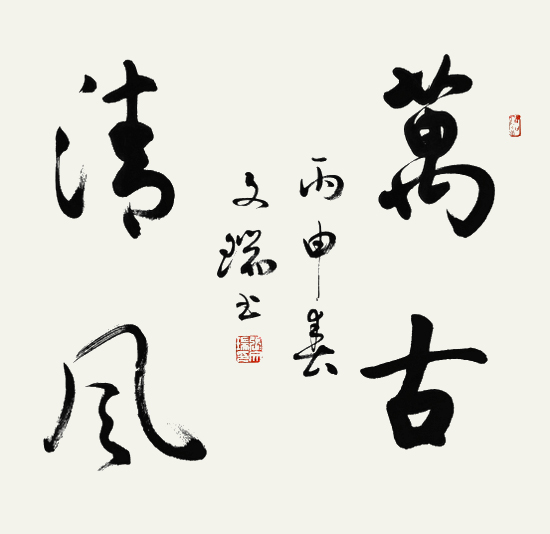 萬古
丙申春
文瑞书
清風